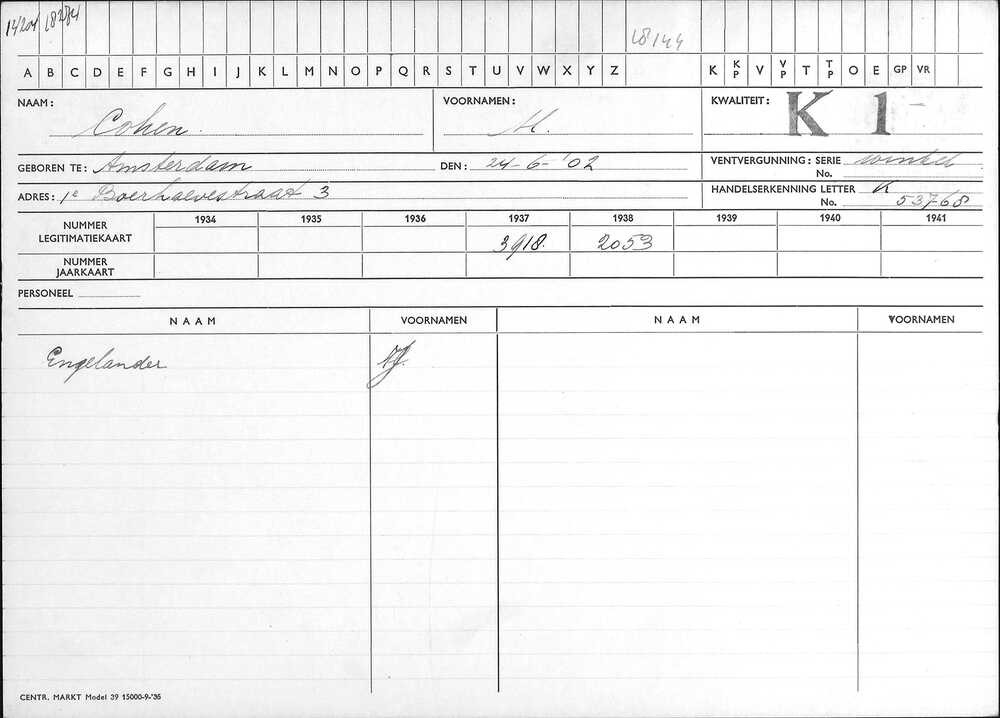 14204 18284 18144
A B C D E F G H I J K L M N O P Q R S T U V W X Y Z K KP V VP T TP O E GP VR
NAAM: Cohen. VOORNAMEN: M. KWALITEIT: K 1
GEBOREN TE: Amsterdam DEN: 24-6-'02 VENTVERGUNNING: SERIE winkel
No.
ADRES: 1e Boerhaevestraat 3 HANDELSERKENNING LETTER K
No. 53768
1934 1935 1936 1937 1938 1939 1940 1941
NUMMER LEGITIMATIEKAART 3918. 2053
NUMMER JAARKAART
PERSONEEL
NAAM VOORNAMEN NAAM VOORNAMEN
Engelander
CENTR. MARKT Model 39 15000-9-'36